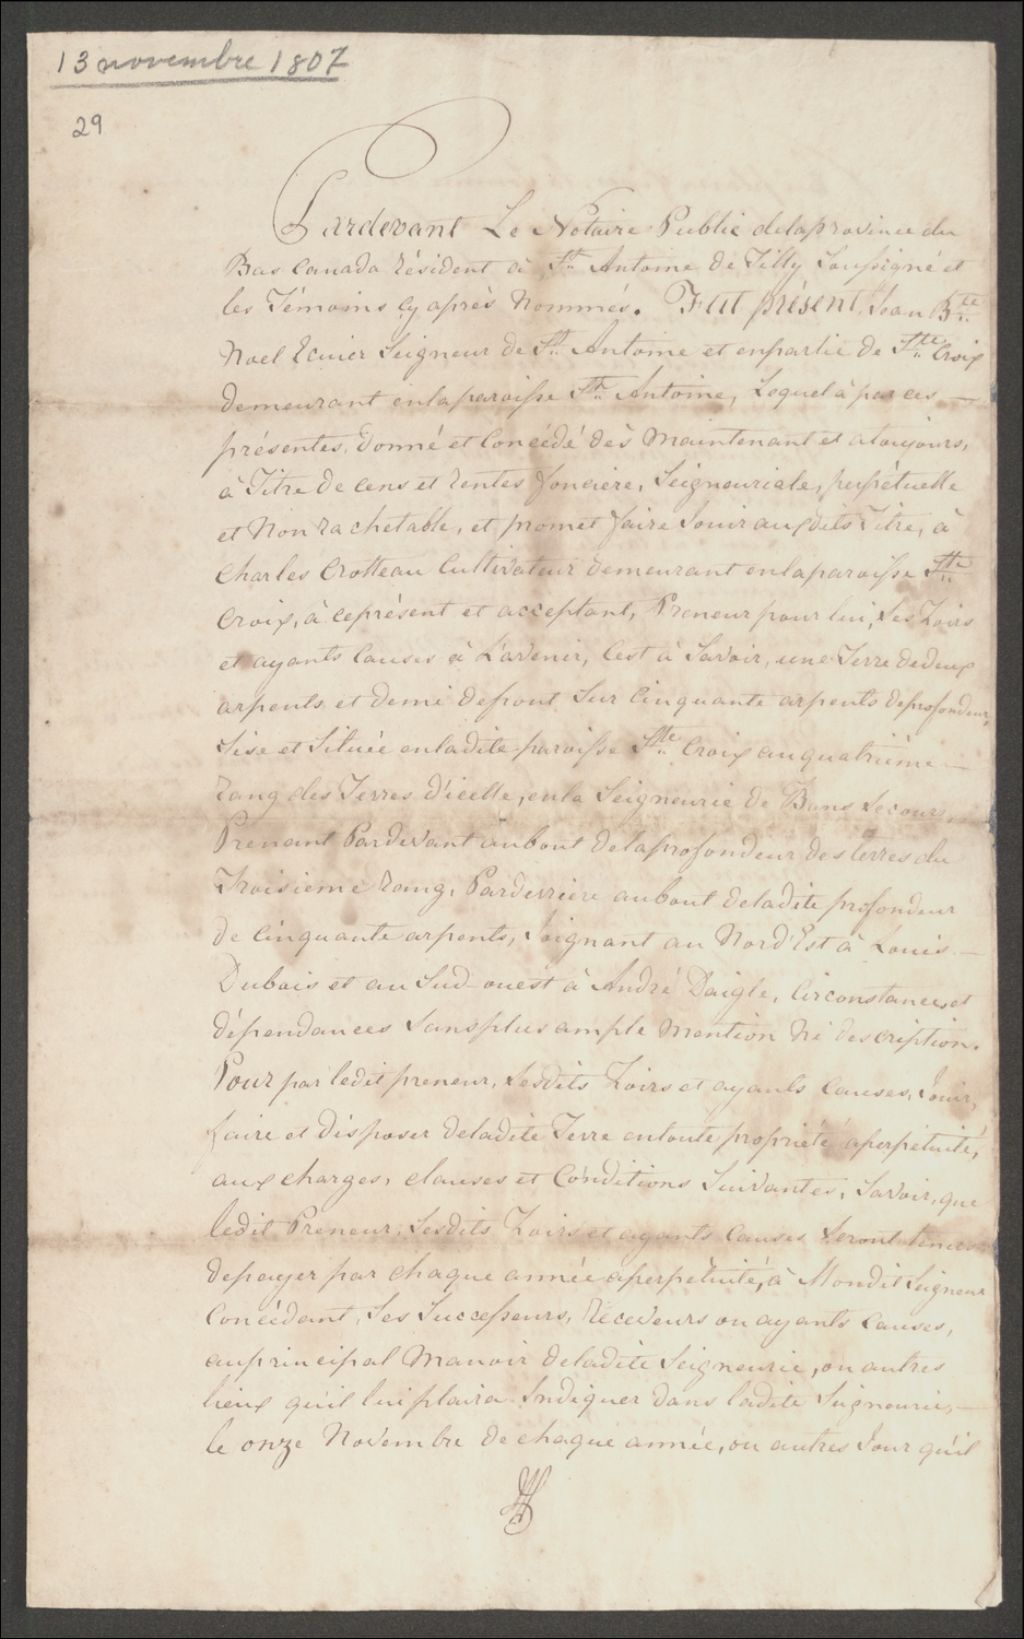 13 novembre 1807
29
Pardevant Le Notaire Public delaprovince du
Bas Canada Résident à St. Antoine de Tilly Soussigné et
les Témoins Cy après Nommés. Fut présent, Jean Bte.
Noel Ecuier Seigneur de St. Antoine et enpartie de Ste. Croix
demeurant enlaparoisse St. Antoine, Lequel à par ces —
présentes, donné et Concédé dès Maintenant et atoujours,
à Titre de Cens et Rentes foncière, Seigneuriale, perpétuelle
et Non Rachetable, et promet faire Jouir auxdits Titre, à
Charles Crotteau Cultivateur demeurant enlaparoisse Ste.
Croix, à ceprésent et acceptant, Preneur pour lui, Ses Hoirs
et ayants Causes à L'avenir, C'est à Savoir, une Terre dedeux
arpents et demi defront Sur Cinquante arpents deprofondeur,
Sise et Située enladite paroisse Ste. Croix auquatrième —
Rang des Terres d'icelle, enla Seigneurie de Bons Secours,
Prenant Pardevant aubout delaprofondeur des terres du
Troisieme Rang, Parderrière aubout deladite profondeur
de Cinquante arpents, Joignant au Nord'Est à Louis —
Dubois et au Sud-ouest à André Daigle, Circonstances et
dépendances Sansplus ample Mention Ni description.
Pour par ledit preneur, Sesdits Hoirs et ayants Causes, Jouir,
faire et disposer deladite Terre entoute propriété aperpétuité,
aux charges, clauses et Conditions Suivantes, Savoir, que
ledit Preneur, Sesdits Hoirs et ayants Causes Seront tenus
depayer par chaque année aperpétuité, à Mondit Seigneur
Concédant, Ses Successeurs, Receveurs ou ayants Causes,
auprincipal Manoir deladite Seigneurie, ou autres
lieux qu'il luiplaira Indiquer dans ladite Seigneurie, —
le onze Novembre de chaque année, ou autres Jour qu'il